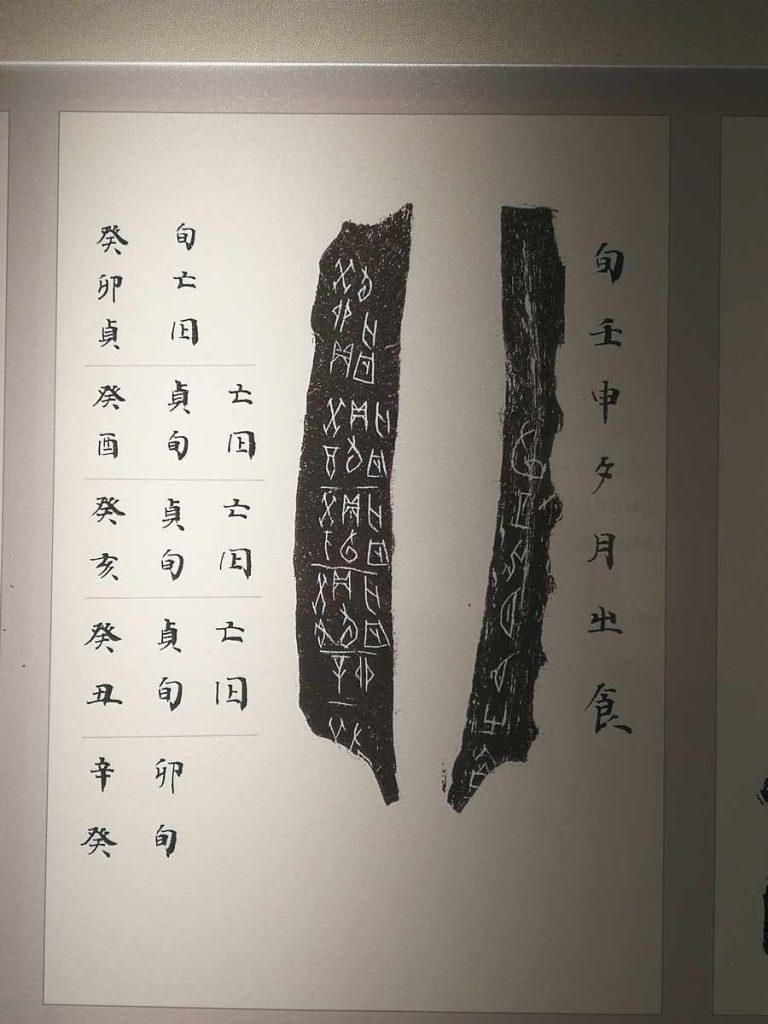 旬壬申夕月㞢食
癸卯貞
旬亡𡆥
癸酉
貞旬
亡𡆥
癸亥
貞旬
亡𡆥
癸丑
貞旬
亡𡆥
辛
卯
癸
旬